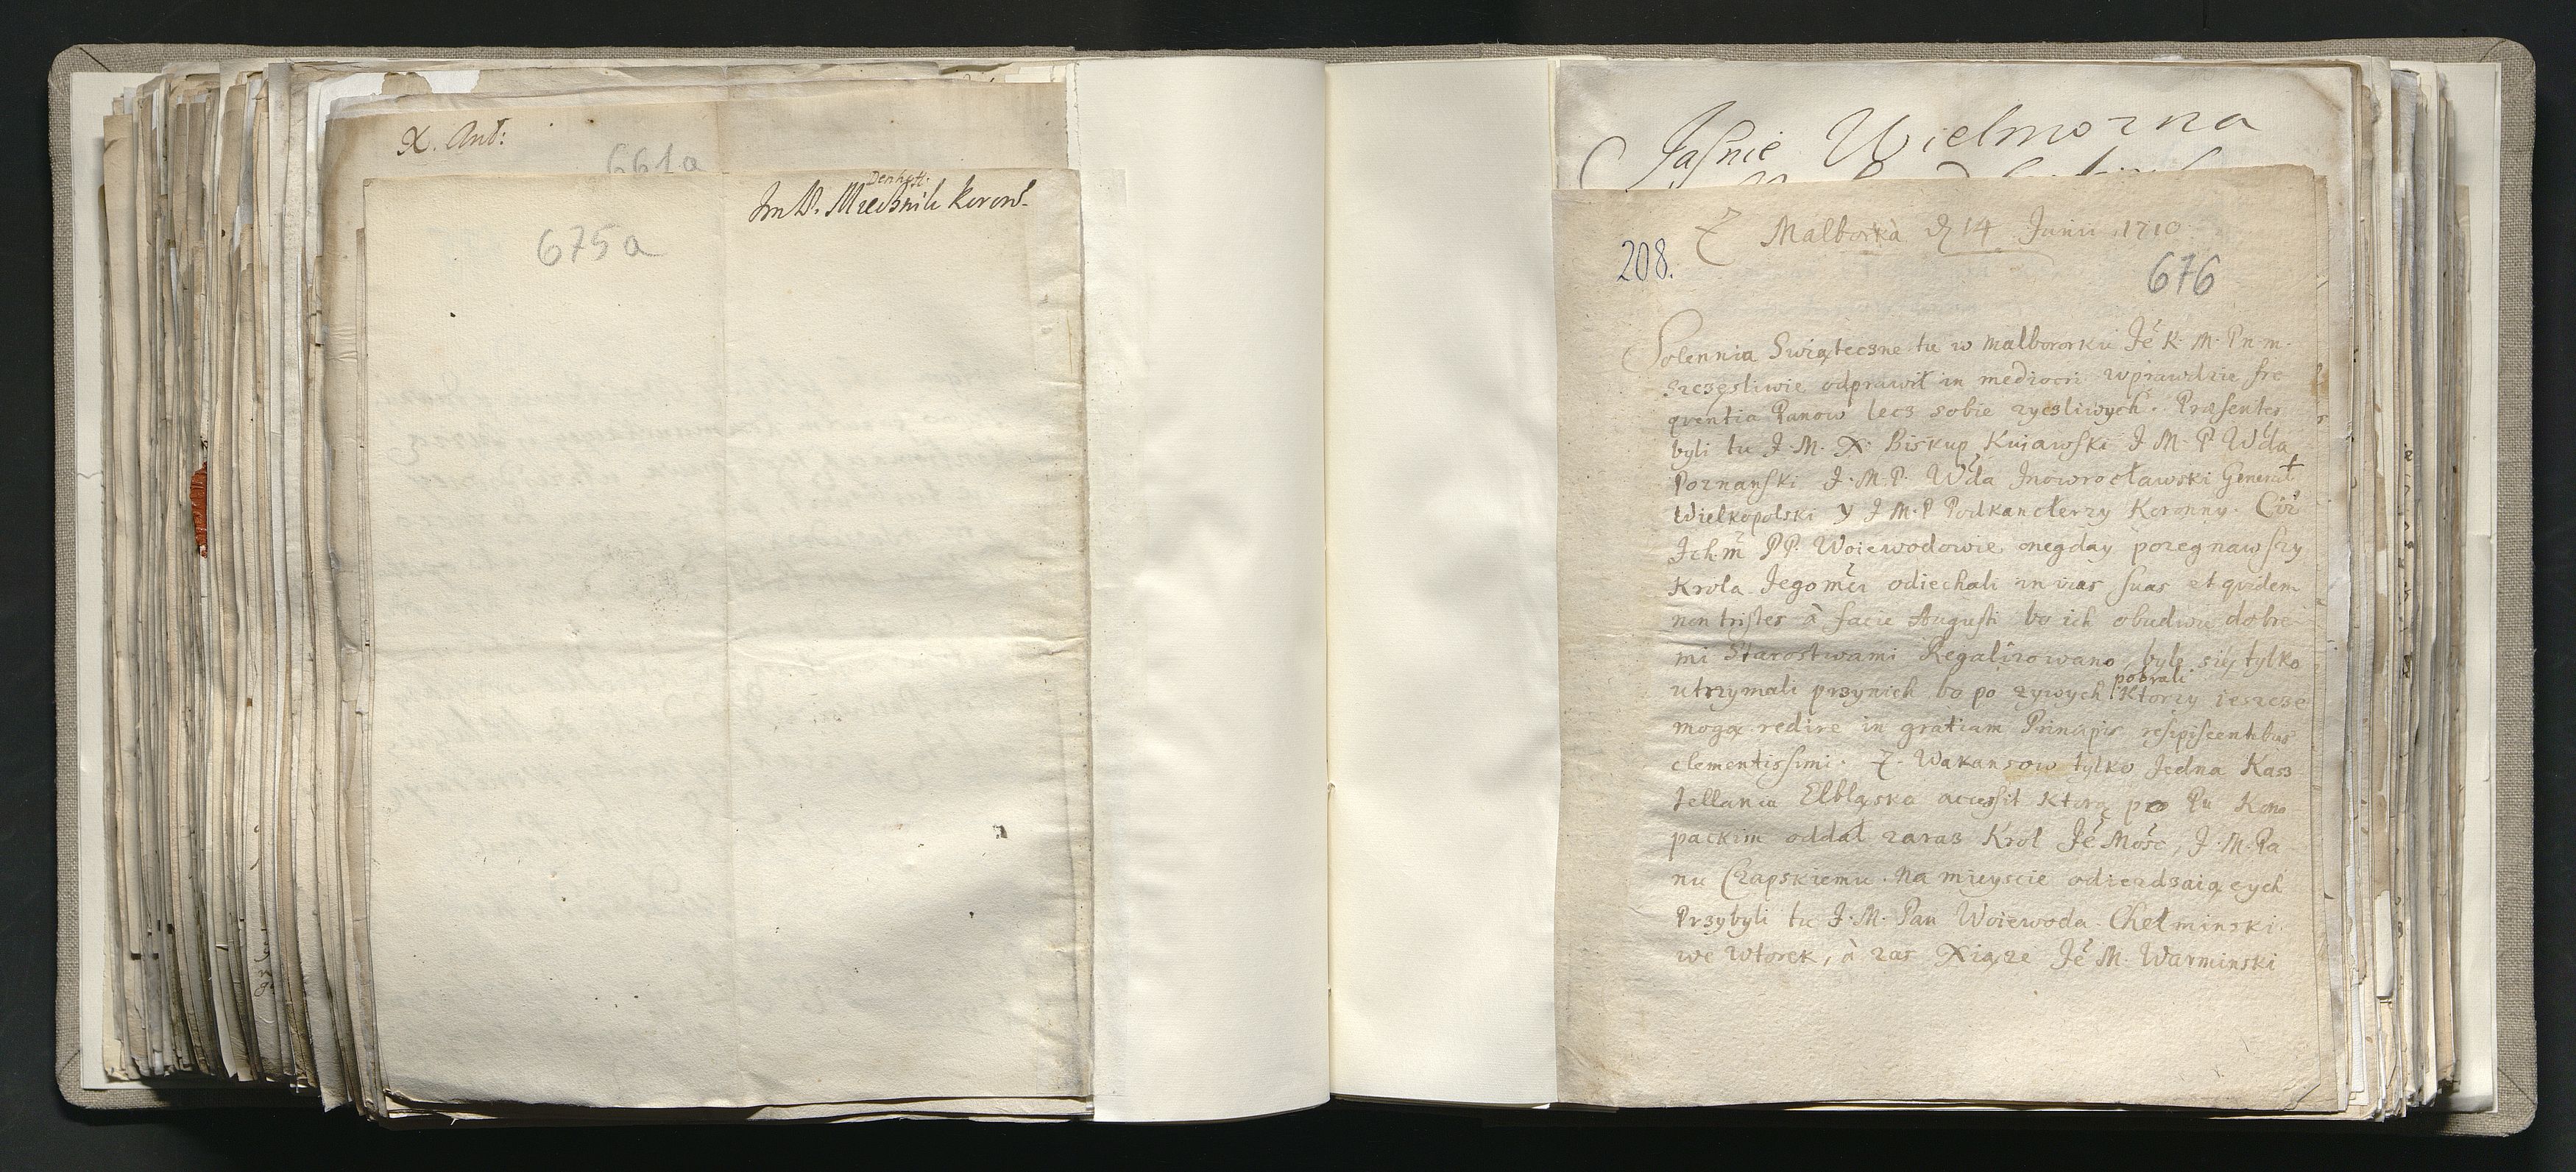 X. Ant:
661a
Denhoff.
Im P. Miecznik Koron.
675a
Jaśnie Wielmozna
Z Malborka d 14 Junii 1710
208.
676
Solennia Swiąteczne tu w Malbororku Jé K. M. P. n. m.
szczęsliwie odprawił in mediocri wprawdzie fre
qventia Panow lecz sobie zyczliwych. Præsentes
byli tu J. M. X. Biskup Kuiawski J M. P Wda
Poznanski J. M. P. Wda Jnowrocławski Generał
Wielkopolski y J M. P Podkanclerzy Koronny. Ciż
Jchm PP. Woiewodowie onegday pozegnawszy
Krola Jegomci odiechali in vias suas et qvidem
non tristes à facie Augusti bo ich obudwu dobre
mi Starostwami Regalizowano, byle się tylko
utrzymali przynich bo po zywych pobrali ktorzy ieszcze
mogą redire in gratiam Principis resipiscentibus
clementissimi. Z. Wakansow tylko Jedna Kasz
tellania Elbląska accessit ktorą pro Pu Kono
packim oddał zaraz Krol Jé Mość, J. M. Pa
nu Czapskiemu. Na mieyscie odiezdzaiących
Przybyli tu J. M. Pan Woiewoda Chełminski
we Wtorek, à zas Xiąze Jé M. Warminski